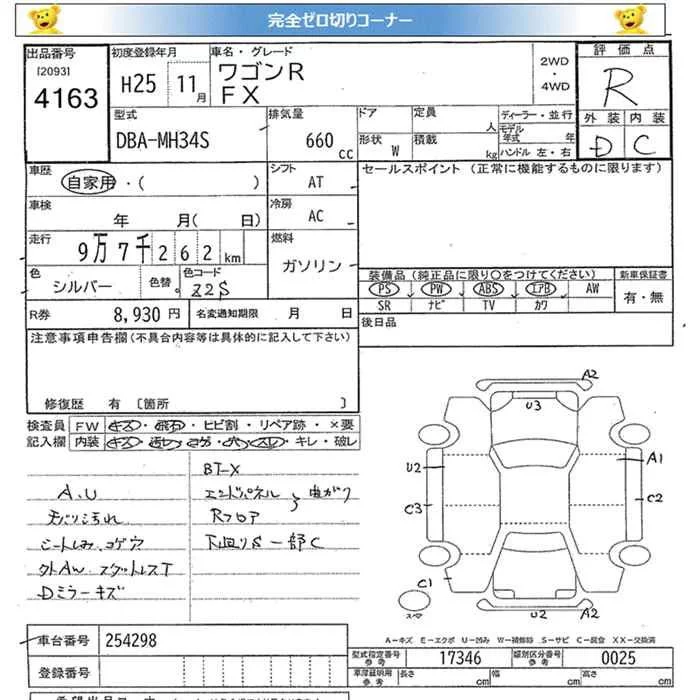 完全ゼロ切りコーナー
出品番号
[2093]
4163
初度登録年月
H25 11月
車名・グレード
ワゴンR
FX
2WD
・
4WD
評価点
R
外装 内装
D C
型式
DBA-MH34S
排気量
660 cc
ドア
定員
人
形状
W
積載
kg
ディーラー・並行
モデル年式 年
ハンドル 左・右
車歴
自家用・( )
車検
年 月( 日)
走行
9万7千262km
色
シルバー
色替
色コード
Z2S
シフト
AT
冷房
AC
燃料
ガソリン
セールスポイント (正常に機能するものに限ります)
装備品(純正品に限り〇をつけてください)
新車保証書
PS PW ABS エアB AW
SR ナビ TV カワ
有・無
後日品
R券 8,930 円
名変通知期限 月 日
注意事項申告欄(不具合内容等は具体的に記入して下さい)
修復歴 有 [箇所 ]
検査員 FW キズ・飛石・ヒビ割・リペア跡・×要
記入欄 内装 キズ・汚レ・コゲ・穴・スレ・キレ・破レ
A.U
天バリ汚れ
シートしみ、コゲ穴
外AW スタットレスT
Dミラーキズ
BT-X
エンドパネル
Rフロア
曲がり
下回りS 一部C
A2
U3
U2
A1
C3
C2
C1
スペア
U2
A2
A-キズ E-エクボ U-凹み W-補修跡 S-サビ C-腐食 XX-交換済
車台番号 254298
登録番号
型式指定番号
参考
17346
類別区分番号
参考
0025
車庫証明用
参考
長さ cm
幅 cm
高さ cm